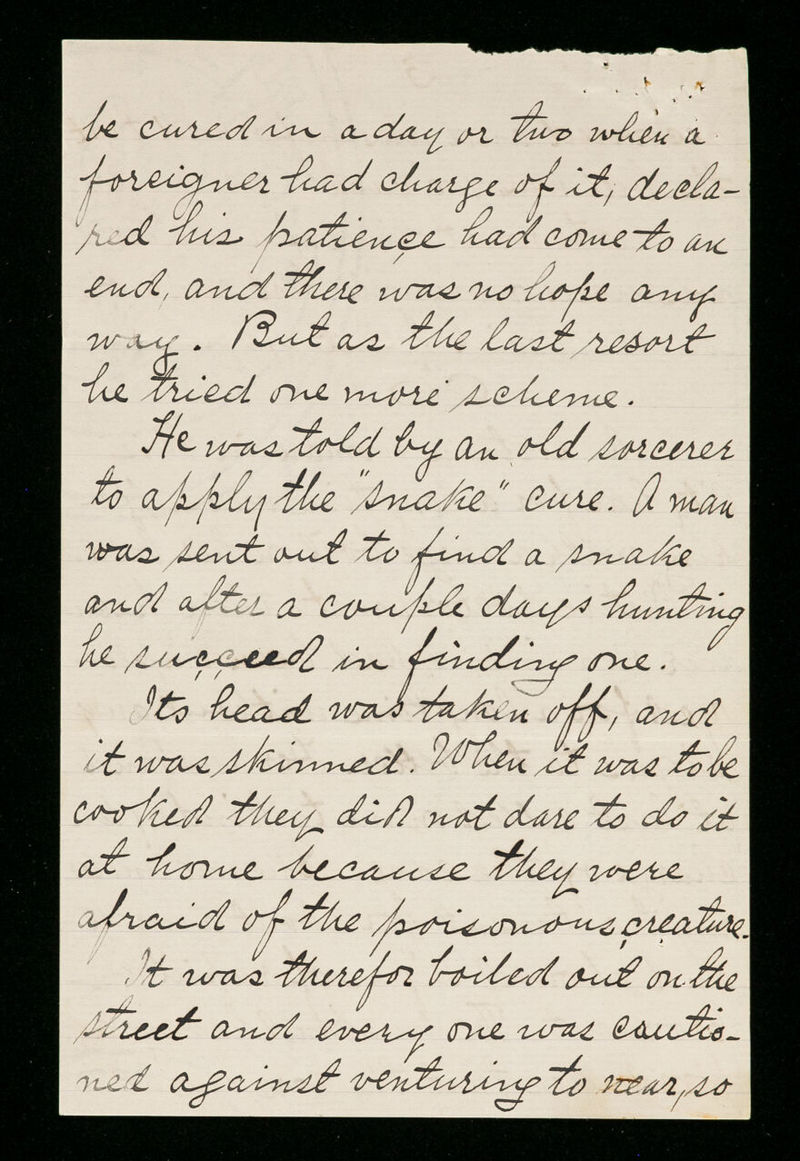 be cured in a day or two when a
foreigner had charge of it, decla-
red his patience had come to an
end, and there was no hope any
way. But as the last resort
he tried one more scheme.
He was told by an old sorcerer
to apply the "snake" cure. A man
was sent out to find a snake
and after a couple days hunting
he succeed in finding one.
Its head was taken off, and
it was skinned. When it was to be
cooked they did not dare to do it
at home because they were
afraid of the poisonous creature.
It was therefor boiled out on the
street and every one was cautio-
ned against venturing to near, so